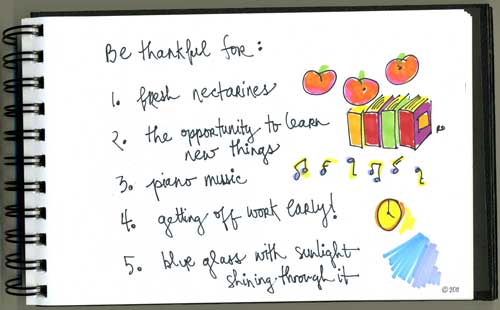 Be thankful for:
1. fresh nectarines
2. the opportunity to learn
new things
3. piano music
4. getting off work early!
5. blue glass with sunlight
shining through it
©2011